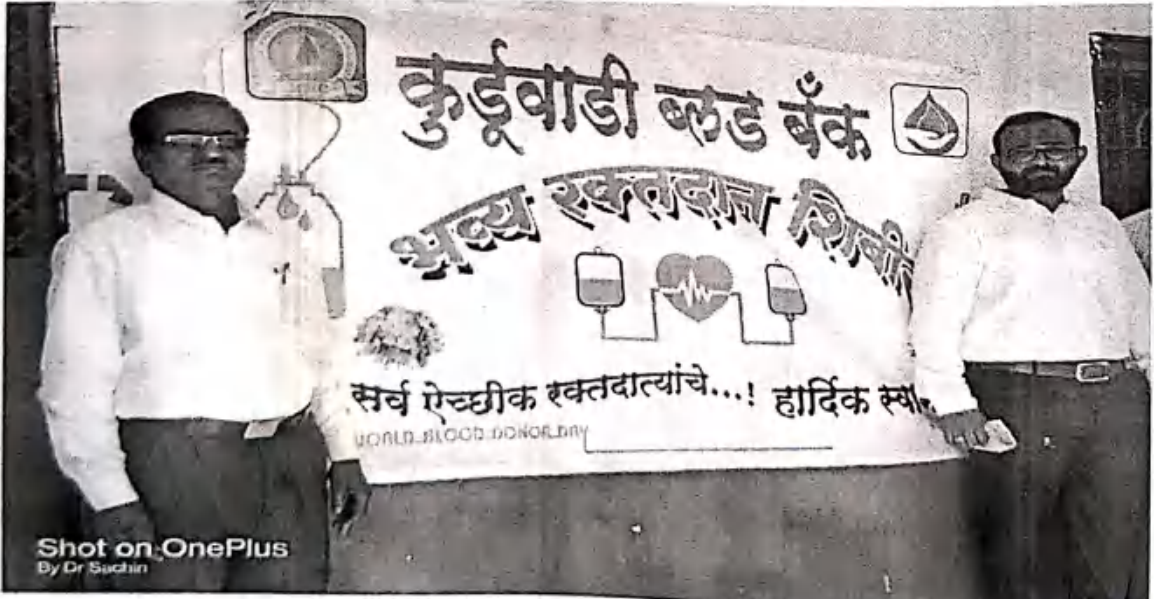 कुर्डूवाडी ब्लड बँक
भव्य रक्तदान शिबी
सर्व ऐच्छीक रक्तदात्यांचे...! हार्दिक स्वा
WORLD BLOOD DONOR DAY
Shot on OnePlus
By Dr Sachin